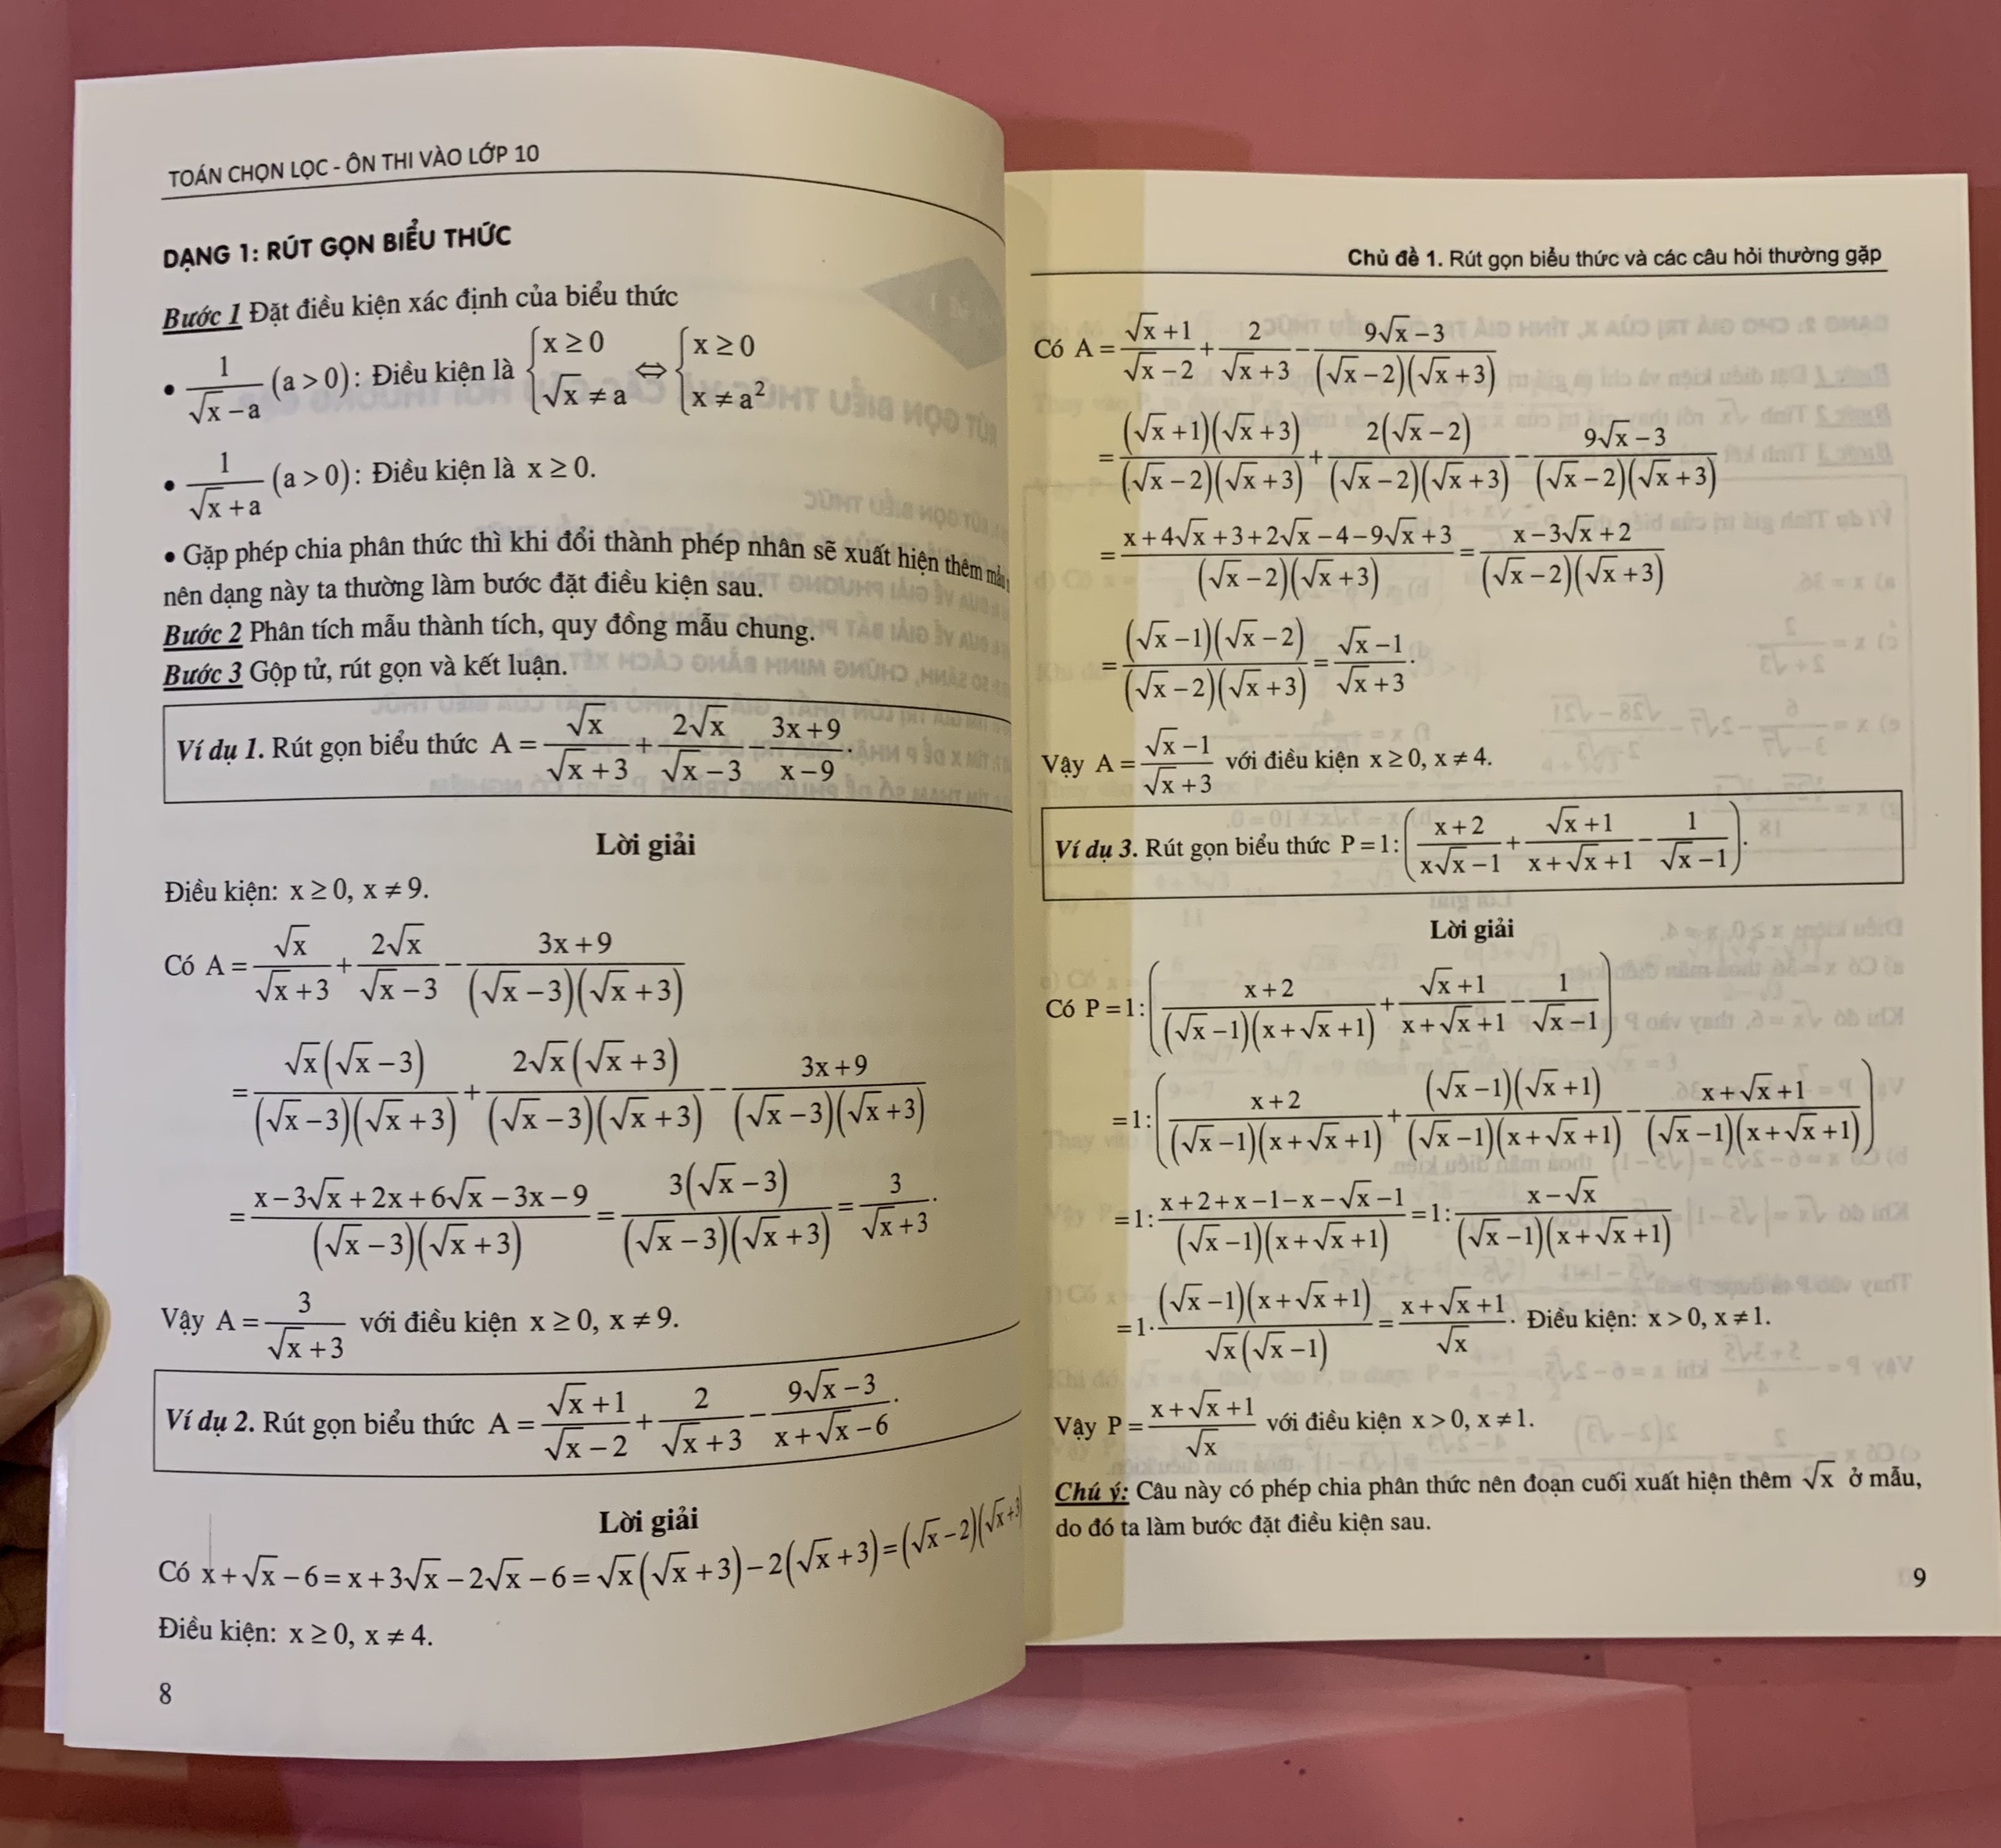 TOÁN CHỌN LỌC - ÔN THI VÀO LỚP 10
DẠNG 1: RÚT GỌN BIỂU THỨC
Bước 1 Đặt điều kiện xác định của biểu thức
• 1/(√x − a) (a > 0): Điều kiện là {x ≥ 0; √x ≠ a ⇔ {x ≥ 0; x ≠ a²
• 1/(√x + a) (a > 0): Điều kiện là x ≥ 0.
• Gặp phép chia phân thức thì khi đổi thành phép nhân sẽ xuất hiện thêm mẫu
nên dạng này ta thường làm bước đặt điều kiện sau.
Bước 2 Phân tích mẫu thành tích, quy đồng mẫu chung.
Bước 3 Gộp tử, rút gọn và kết luận.
Ví dụ 1. Rút gọn biểu thức A = √x/(√x + 3) + 2√x/(√x − 3) − (3x + 9)/(x − 9).
Lời giải
Điều kiện: x ≥ 0, x ≠ 9.
Có A = √x/(√x + 3) + 2√x/(√x − 3) − (3x + 9)/((√x − 3)(√x + 3))
= √x(√x − 3)/((√x − 3)(√x + 3)) + 2√x(√x + 3)/((√x − 3)(√x + 3)) − (3x + 9)/((√x − 3)(√x + 3))
= (x − 3√x + 2x + 6√x − 3x − 9)/((√x − 3)(√x + 3)) = 3(√x − 3)/((√x − 3)(√x + 3)) = 3/(√x + 3).
Vậy A = 3/(√x + 3) với điều kiện x ≥ 0, x ≠ 9.
Ví dụ 2. Rút gọn biểu thức A = (√x + 1)/(√x − 2) + 2/(√x + 3) − (9√x − 3)/(x + √x − 6).
Lời giải
Có x + √x − 6 = x + 3√x − 2√x − 6 = √x(√x + 3) − 2(√x + 3) = (√x − 2)(√x + 3
Điều kiện: x ≥ 0, x ≠ 4.
8
Chủ đề 1. Rút gọn biểu thức và các câu hỏi thường gặp
Có A = (√x + 1)/(√x − 2) + 2/(√x + 3) − (9√x − 3)/((√x − 2)(√x + 3))
= (√x + 1)(√x + 3)/((√x − 2)(√x + 3)) + 2(√x − 2)/((√x − 2)(√x + 3)) − (9√x − 3)/((√x − 2)(√x + 3))
= (x + 4√x + 3 + 2√x − 4 − 9√x + 3)/((√x − 2)(√x + 3)) = (x − 3√x + 2)/((√x − 2)(√x + 3))
= (√x − 1)(√x − 2)/((√x − 2)(√x + 3)) = (√x − 1)/(√x + 3).
Vậy A = (√x − 1)/(√x + 3) với điều kiện x ≥ 0, x ≠ 4.
Ví dụ 3. Rút gọn biểu thức P = 1 : ((x + 2)/(x√x − 1) + (√x + 1)/(x + √x + 1) − 1/(√x − 1)).
Lời giải
Có P = 1 : ((x + 2)/((√x − 1)(x + √x + 1)) + (√x + 1)/(x + √x + 1) − 1/(√x − 1))
= 1 : ((x + 2)/((√x − 1)(x + √x + 1)) + (√x − 1)(√x + 1)/((√x − 1)(x + √x + 1)) − (x + √x + 1)/((√x − 1)(x + √x + 1)))
= 1 : (x + 2 + x − 1 − x − √x − 1)/((√x − 1)(x + √x + 1)) = 1 : (x − √x)/((√x − 1)(x + √x + 1))
= 1 · (√x − 1)(x + √x + 1)/(√x(√x − 1)) = (x + √x + 1)/√x. Điều kiện: x > 0, x ≠ 1.
Vậy P = (x + √x + 1)/√x với điều kiện x > 0, x ≠ 1.
Chú ý: Câu này có phép chia phân thức nên đoạn cuối xuất hiện thêm √x ở mẫu,
do đó ta làm bước đặt điều kiện sau.
9